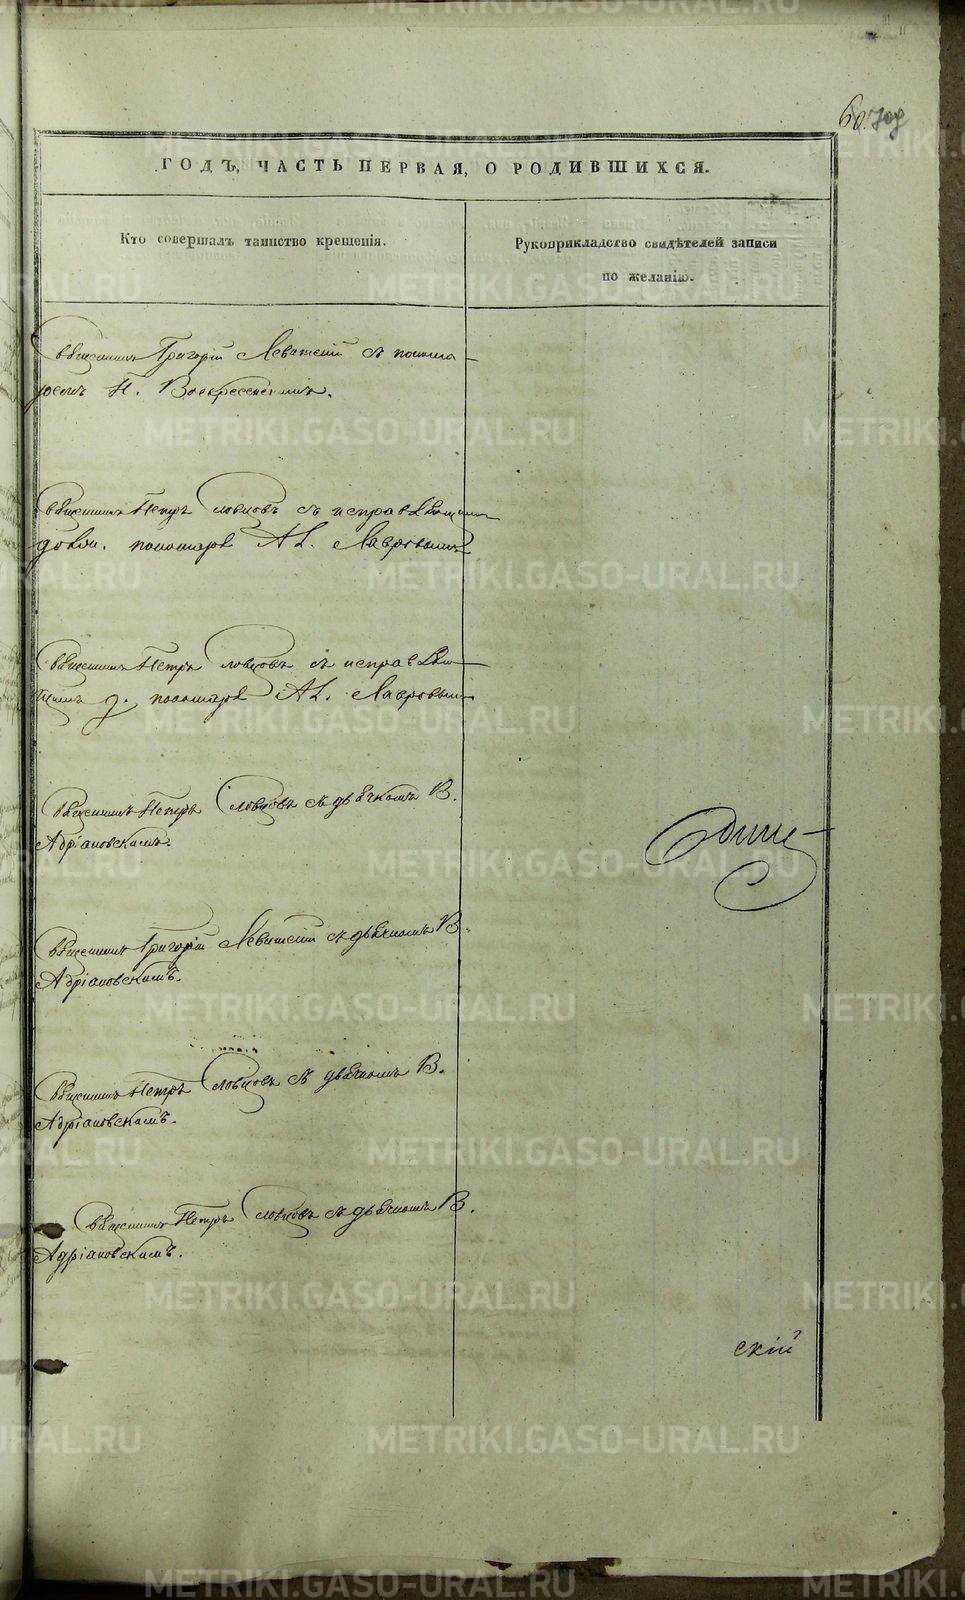 METRIKI.GASO-URAL.RU
60.
ГОДЪ, ЧАСТЬ ПЕРВАЯ, О РОДИВШИХСЯ.
Кто совершалъ таинство крещенія.
Рукоприкладство свидѣтелей записи
по желанію.
Священникъ Григорій Левитскій съ понома-
ремъ Н. Воскресенскимъ.
Священникъ Петръ Словцовъ съ исправляющимъ
долж. пономаря Ал. Лавровымъ
Священникъ Петръ Словцовъ съ исправляю-
щимъ д. пономаря Ал. Лавровымъ
Священникъ Петръ Словцовъ съ дьячкомъ В.
Адріановскимъ.
Священникъ Григорій Левитскій съ дьячкомъ В.
Адріановскимъ.
Священникъ Петръ Словцовъ съ дьячкомъ В.
Адріановскимъ.
Священникъ Петръ Словцовъ съ дьячкомъ В.
Адріановскимъ.
скій